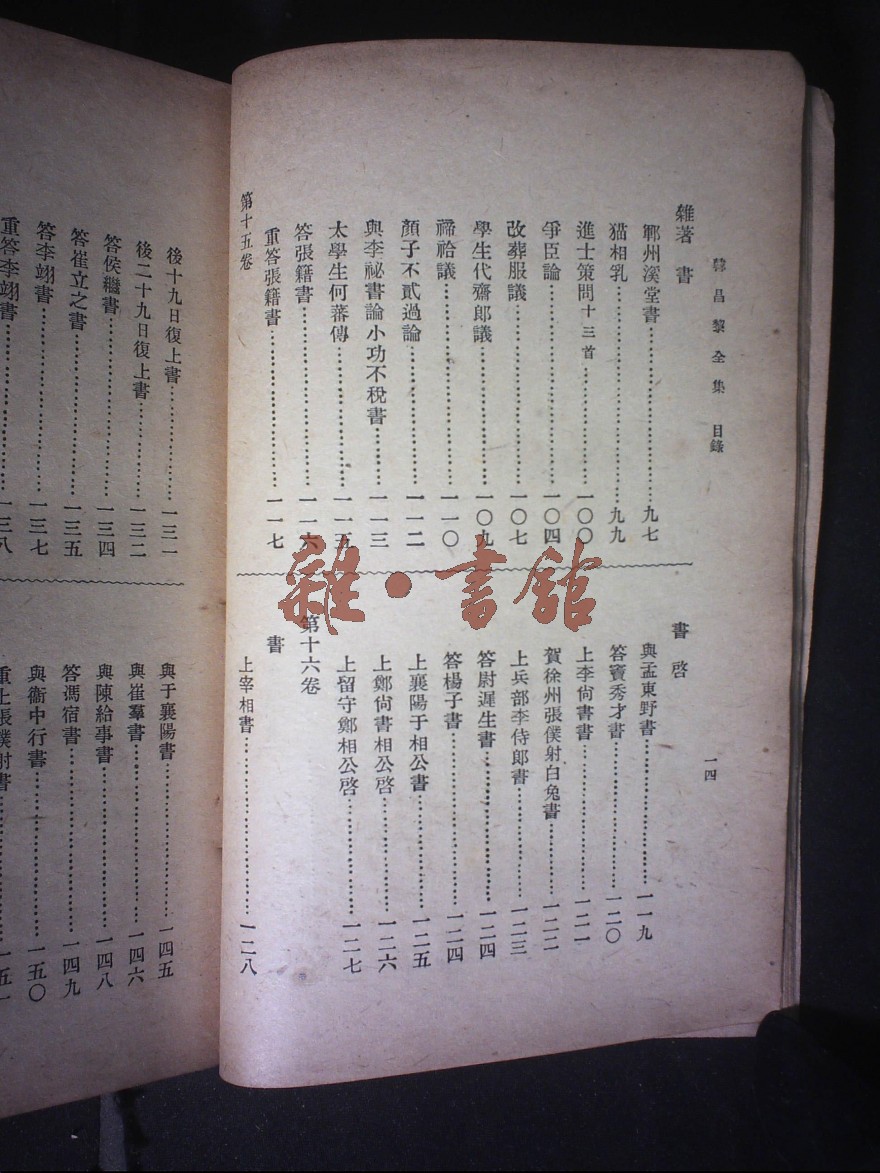 韓昌黎全集 目錄 一四
雜著 書
鄆州溪堂書 九七
猫相乳 九九
進士策問十三首 一〇〇
爭臣論 一〇四
改葬服議 一〇七
學生代齋郎議 一〇九
禘祫議 一一〇
顏子不貳過論 一一二
與李祕書論小功不稅書 一一三
太學生何蕃傳 一一五
答張籍書 一一六
重答張籍書 一一七
第十五卷
書 啓
與孟東野書 一一九
答竇秀才書 一二〇
上李尙書書 一二一
賀徐州張僕射白兔書 一二二
上兵部李侍郎書 一二三
答尉遲生書 一二四
答楊子書 一二四
上襄陽于相公書 一二五
上鄭尙書相公啓 一二六
上留守鄭相公啓 一二七
第十六卷
書
上宰相書 一二八
後十九日復上書 一三一
後二十九日復上書 一三二
答侯繼書 一三四
答崔立之書 一三五
答李翊書 一三七
重答李翊書 一三八
與于襄陽書 一四五
與崔羣書 一四六
與陳給事書 一四八
答馮宿書 一四九
與衞中行書 一五〇
重上張僕射書 一五一
雜·書館